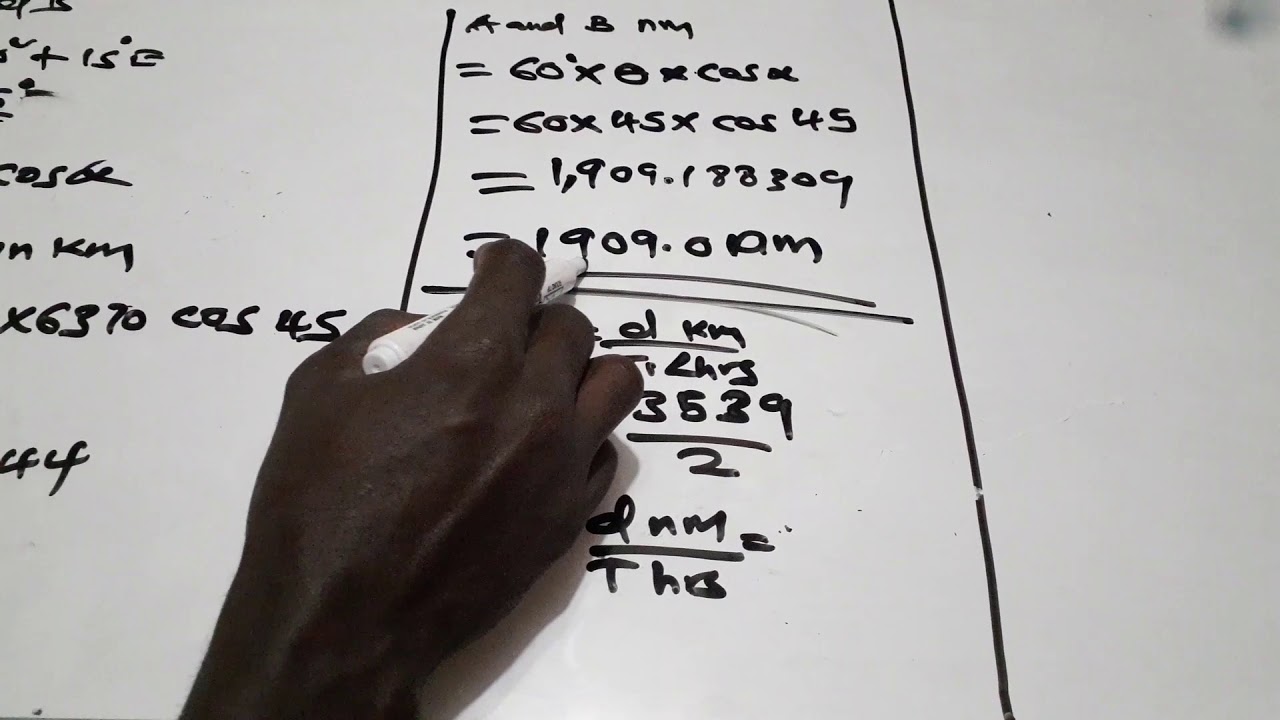 d B
+ 15°E
cosα
in km
x6370 cos 45
44
A and B nm
= 60°x θ x cosα
= 60x 45x cos 45
= 1,909.188309
= 1909.0 nm
= d km
T. 2hrs
3539
2
d nm =
T hrs